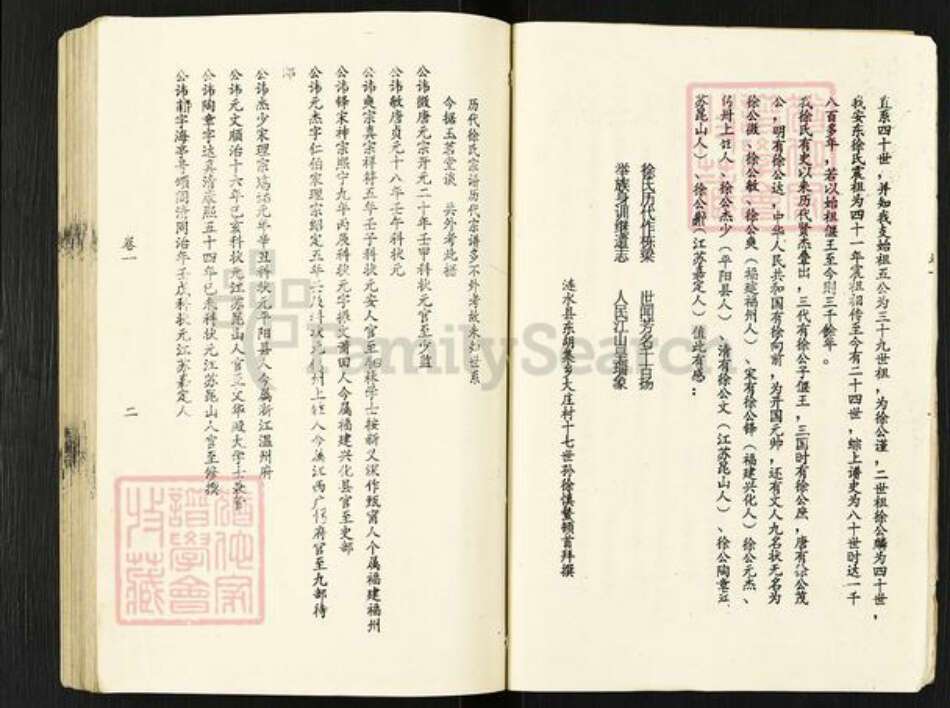 直系四十世，并知我支始祖五公为三十九世祖，为徐公谨，二世祖徐公麟为四十世，
我安东徐氏震祖为四十一年震祖相传至今有二十四世，综上谱史为八十世时达一千
八百多年，若以始祖偃王至今则三千余年。
我徐氏有史以来历代贤杰叠出，三代有徐公子偃王，三国时有徐公庶，唐有徐公茂
公，明有徐公达，中华人民共和国有徐向前，为开国元帅，还有文人九名状无名为
徐公徽、徐公敏、徐公奭（福建福州人）、宋有徐公铎（福建兴化人）徐公元杰、
州上 人、徐公杰少（平阳县人）、清有徐公文（江苏昆山人）、徐公陶章江
苏昆山人）、徐公（江苏嘉定人）值此有感：
徐氏历代作栋梁 世闻芳名十百扬
举族身训继遗志 人民江山呈瑞象
涟水县东胡集乡大庄村十七世孙徐慎鳌顿首拜撰
历代徐氏宗谱历代宗谱多不外考故未列世系
今据玉茗堂谈 共外考此搭
公讳徽唐元宗开元二十年壬甲科状元官至少监
公讳敏唐贞元十八年壬午科状元
公讳奭宗真宗祥符五年壬子科状元安人官至翰林学士按新又误作甄甯人个属福建福州
公讳铎宋神宗熙宁九年丙辰科状元字振文莆田人今属福建兴化县官至吏部
公讳元杰字仁伯宋理宗绍定五年壬辰科状元 州上 人今属江西广 府官至九部待
郎
公讳杰少宋理宗 元年辛丑科状元平阳县人今属浙江温州府
公讳元文顺治十六年己亥科状元江苏昆山人官三文华殿大学士
公讳陶章字达真清康熙五十四年己未科状元江苏昆山人官至修撰
公讳 字海 号颂阁清同治年壬戌科状元江苏嘉定人
卷一
二